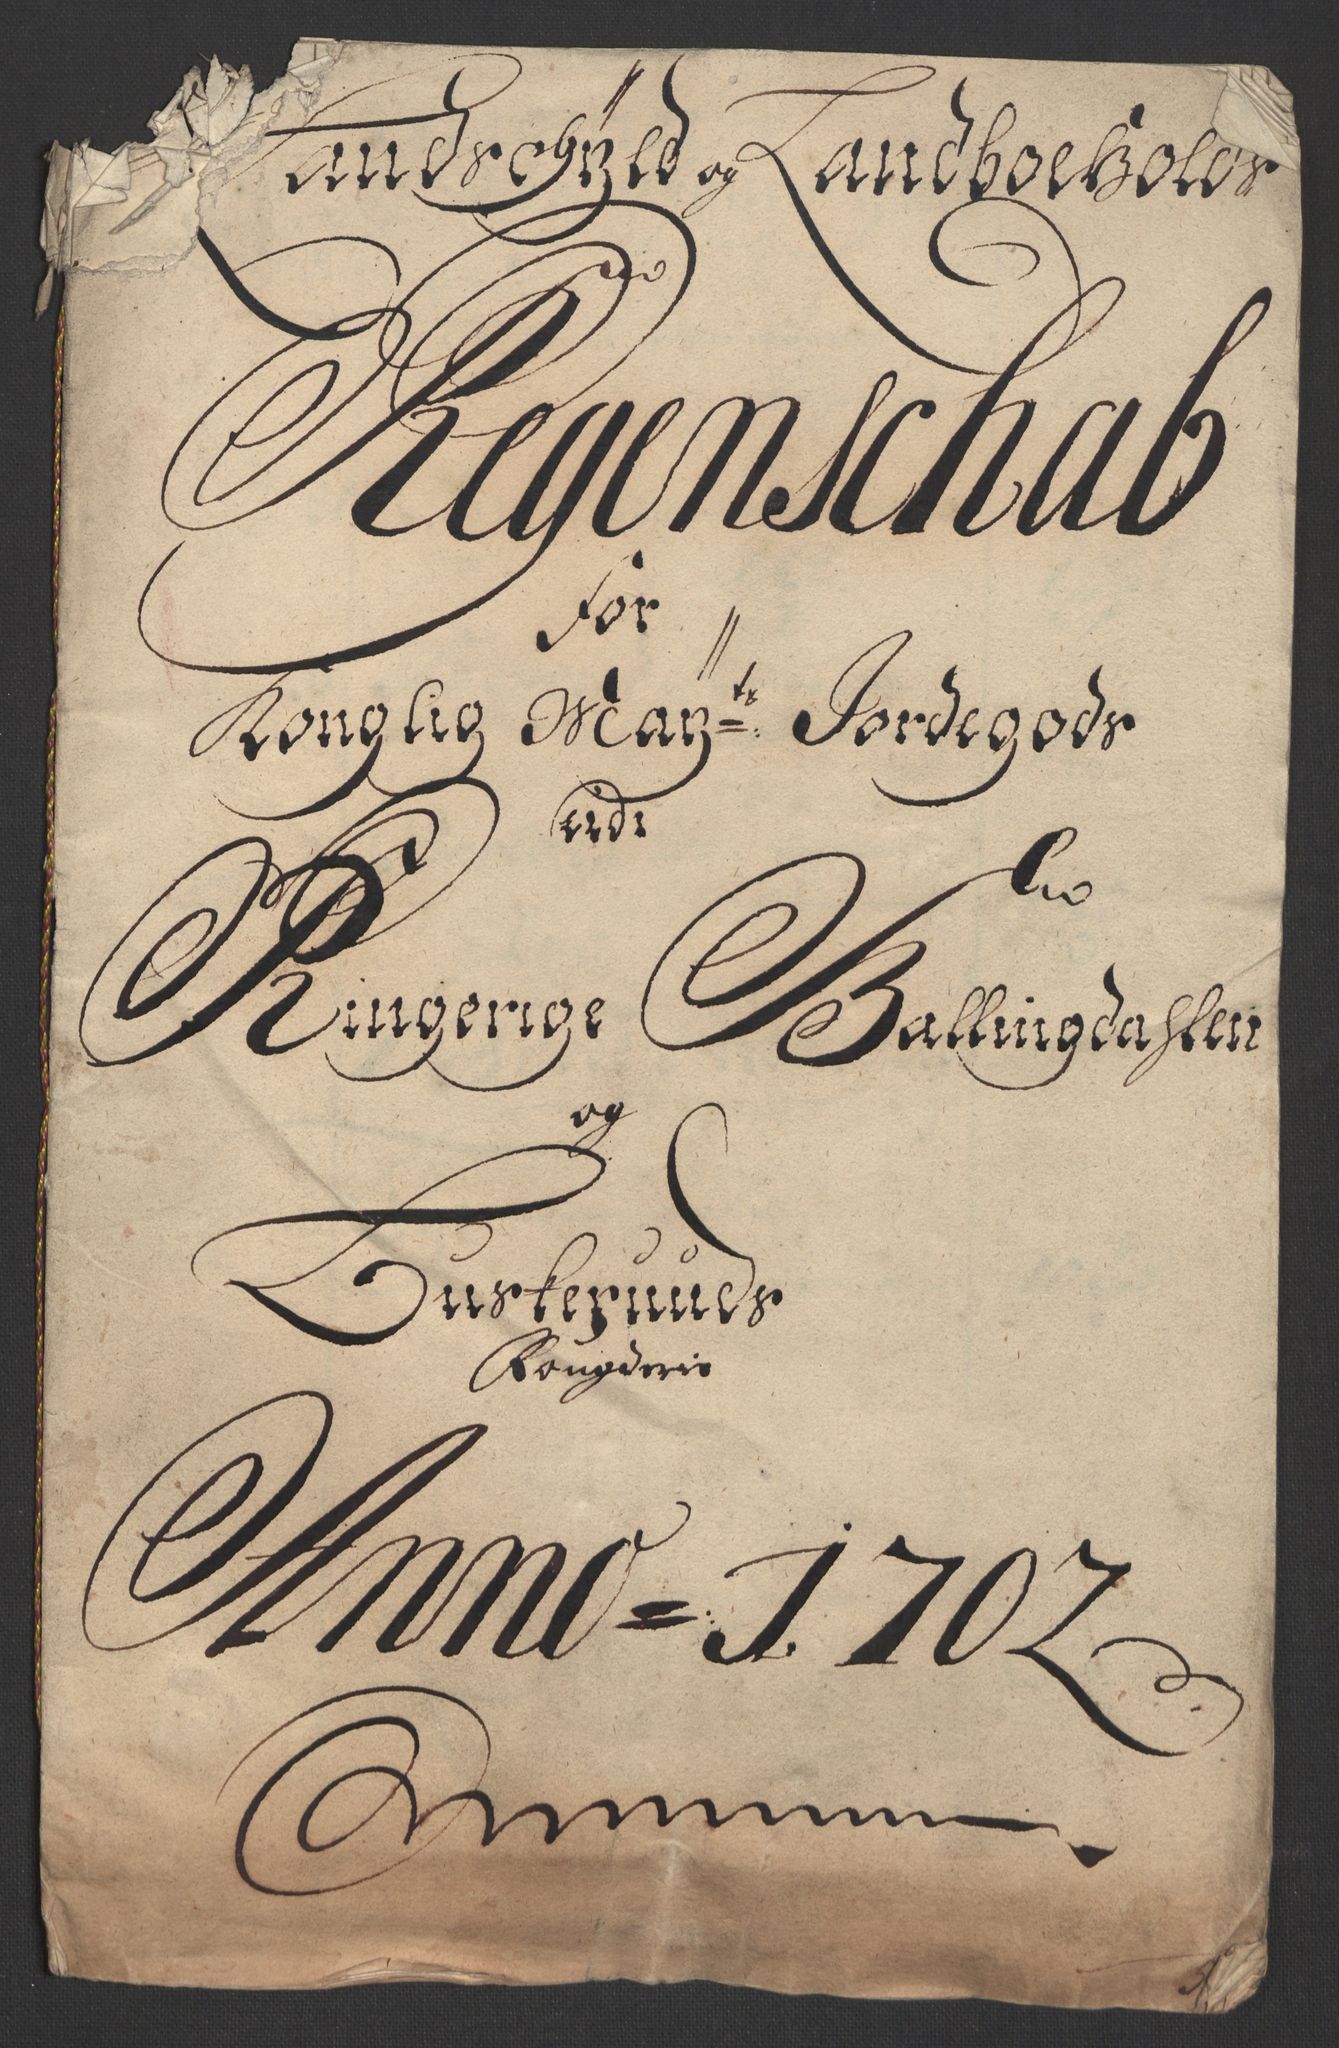 Landschÿld og Landboeholds
Regenschab
for
Konglig Maÿ:ts Jordegods
udi
Ringerige Hallingdahlen
og
Buskeruuds
Fougderie
Anno = 1702